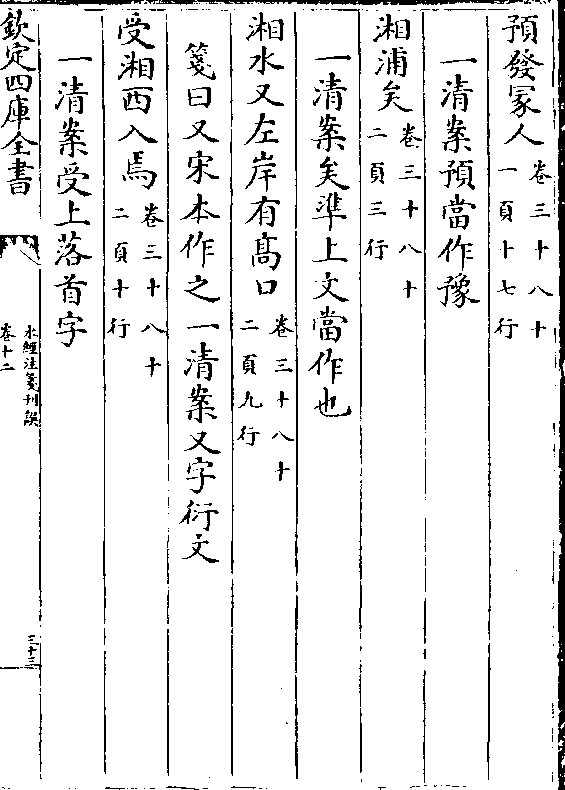 預發冡人卷三十八十一頁十七行
一清案預當作豫
湘浦矣卷三十八十二頁三行
一清案矣準上文當作也
湘水又左岸有高口卷三十八十二頁九行
箋曰又宋本作之一清案又字衍文
受湘西入焉卷三十八十二頁十行
一清案受上落首字
欽定四庫全書
水經注箋刊誤
卷十二
三十三